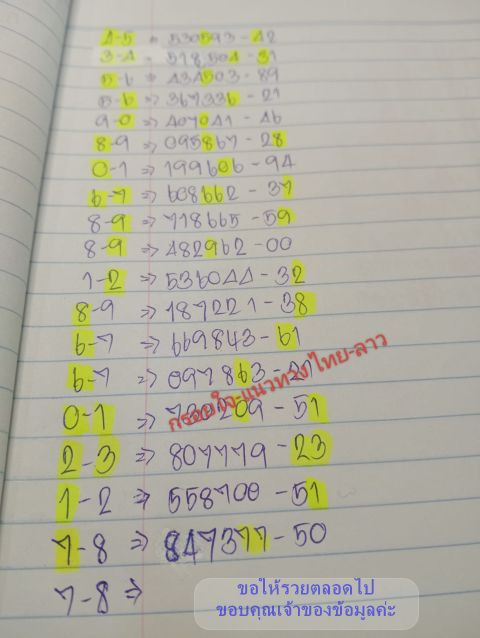 4-5 => 530593-42
3-4 => 518504-31
5-6 => 434503-89
5-6 => 367336-21
9-0 => 407041-46
8-9 => 095867-28
0-1 => 199606-94
6-7 => 608662-37
8-9 => 718665-59
8-9 => 482962-00
1-2 => 536044-32
8-9 => 187221-38
6-7 => 669843-61
6-7 => 097863-21
กรอยใจ-แนวทางไทย-ลาว
0-1 => 730209-51
2-3 => 807779-23
1-2 => 558700-51
7-8 => 847377-50
7-8 =>
ขอให้รวยตลอดไป
ขอบคุณเจ้าของข้อมูลค่ะ